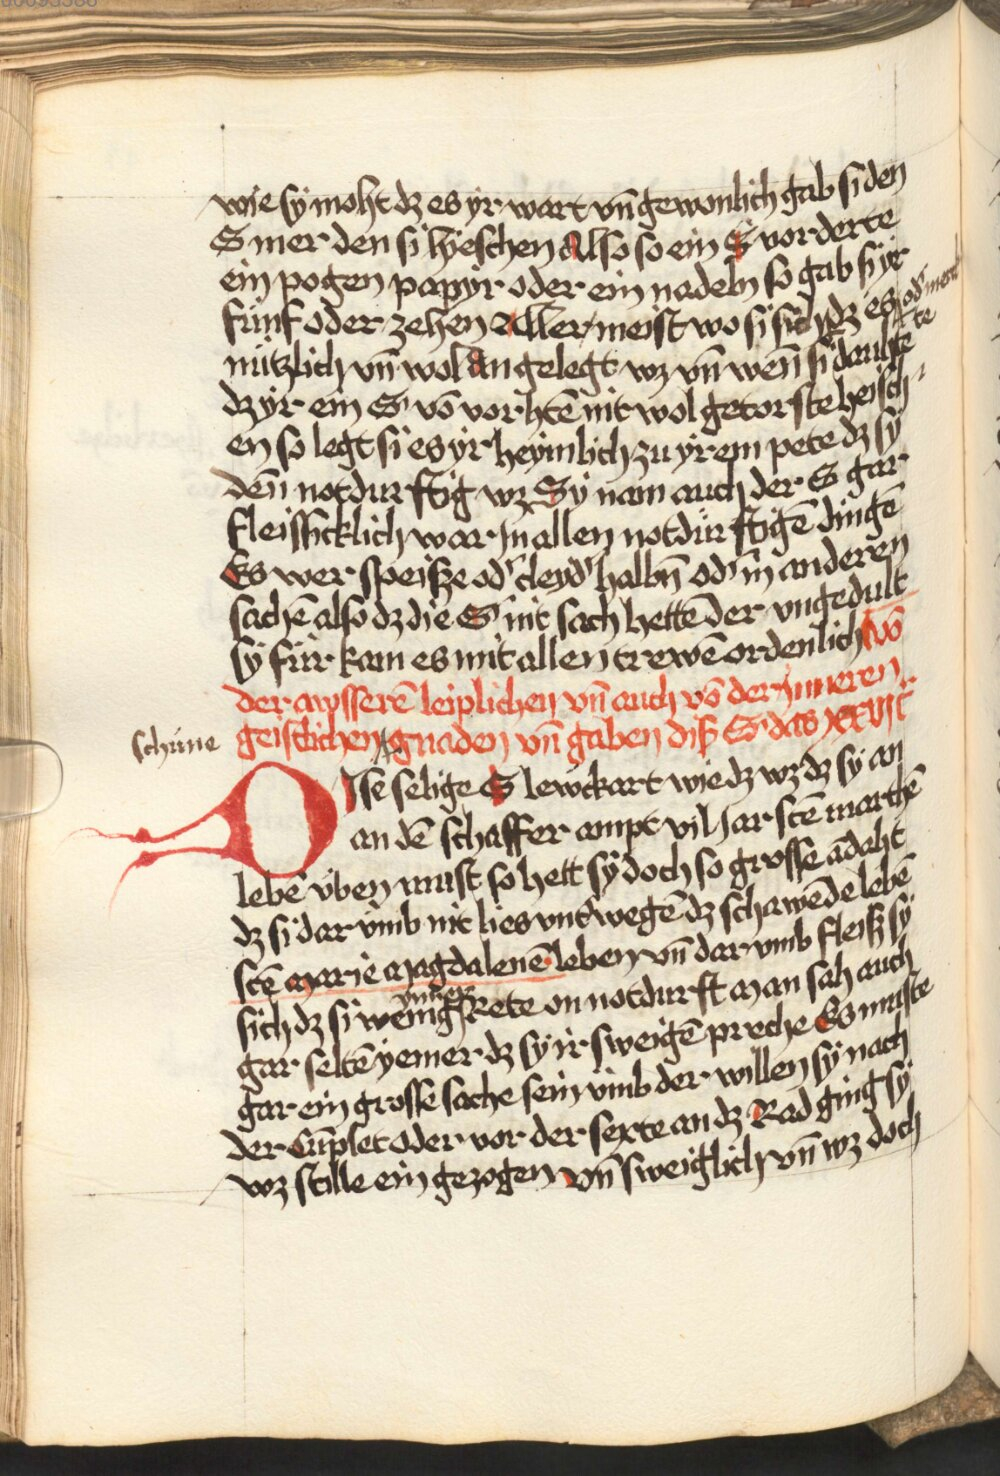 wie sy moht dz es yr wart vn̄ gewonlich gab si den
S mer den si hieschen Also so ein S vorderte
ein pogen papyr oder ein nadeln so gab si yr
fünf oder zehen Aller meist wo si sich dz es od mer
nützlich vn̄ wol an gelegt wz vn̄ wen̄ si dauhte
dz yr ein S vō vorhtē nit wol getorste heisch
en so legt si es yr heymlich zu yrem pete dz sy
den̄ notdurftig wz Sy nam auch der S gar
fleissicklich war Jn allen notdürftigē dingē
Es wer speisze od' cleyd' halbn̄ od' in anderen
sachē also dz die S nit sach hettē der vngedult
sy für kam es mit allen trewē ordenlich Vō
der awsserē leiplichen vn̄ auch vō der inneren
geistlichen gnaden vn̄ gaben disz S das XXVII c
schüne
Dise selige S lewckart wie dz wz dz sy an
an dē schaffer ampt vil Jar sctē marthē
lebē üben must so hett sy doch so grosse ādaht
dz si dar vmb nit lies vnt wegē dz schawēde lebē
sctē marie magdalenē leben vn̄ dar vmb fleisz sy
sich dz si wenig Rete on notdurft man sah auch
gar seltē yemer dz sy ir sweigē preche Es muste
gar ein grosse sache sein vmb der willen sy nach
der Cūplet oder vor der sexte an dz Rad ging sy
wz stille ein gezogen vn̄ sweiglich vn̄ wz doch